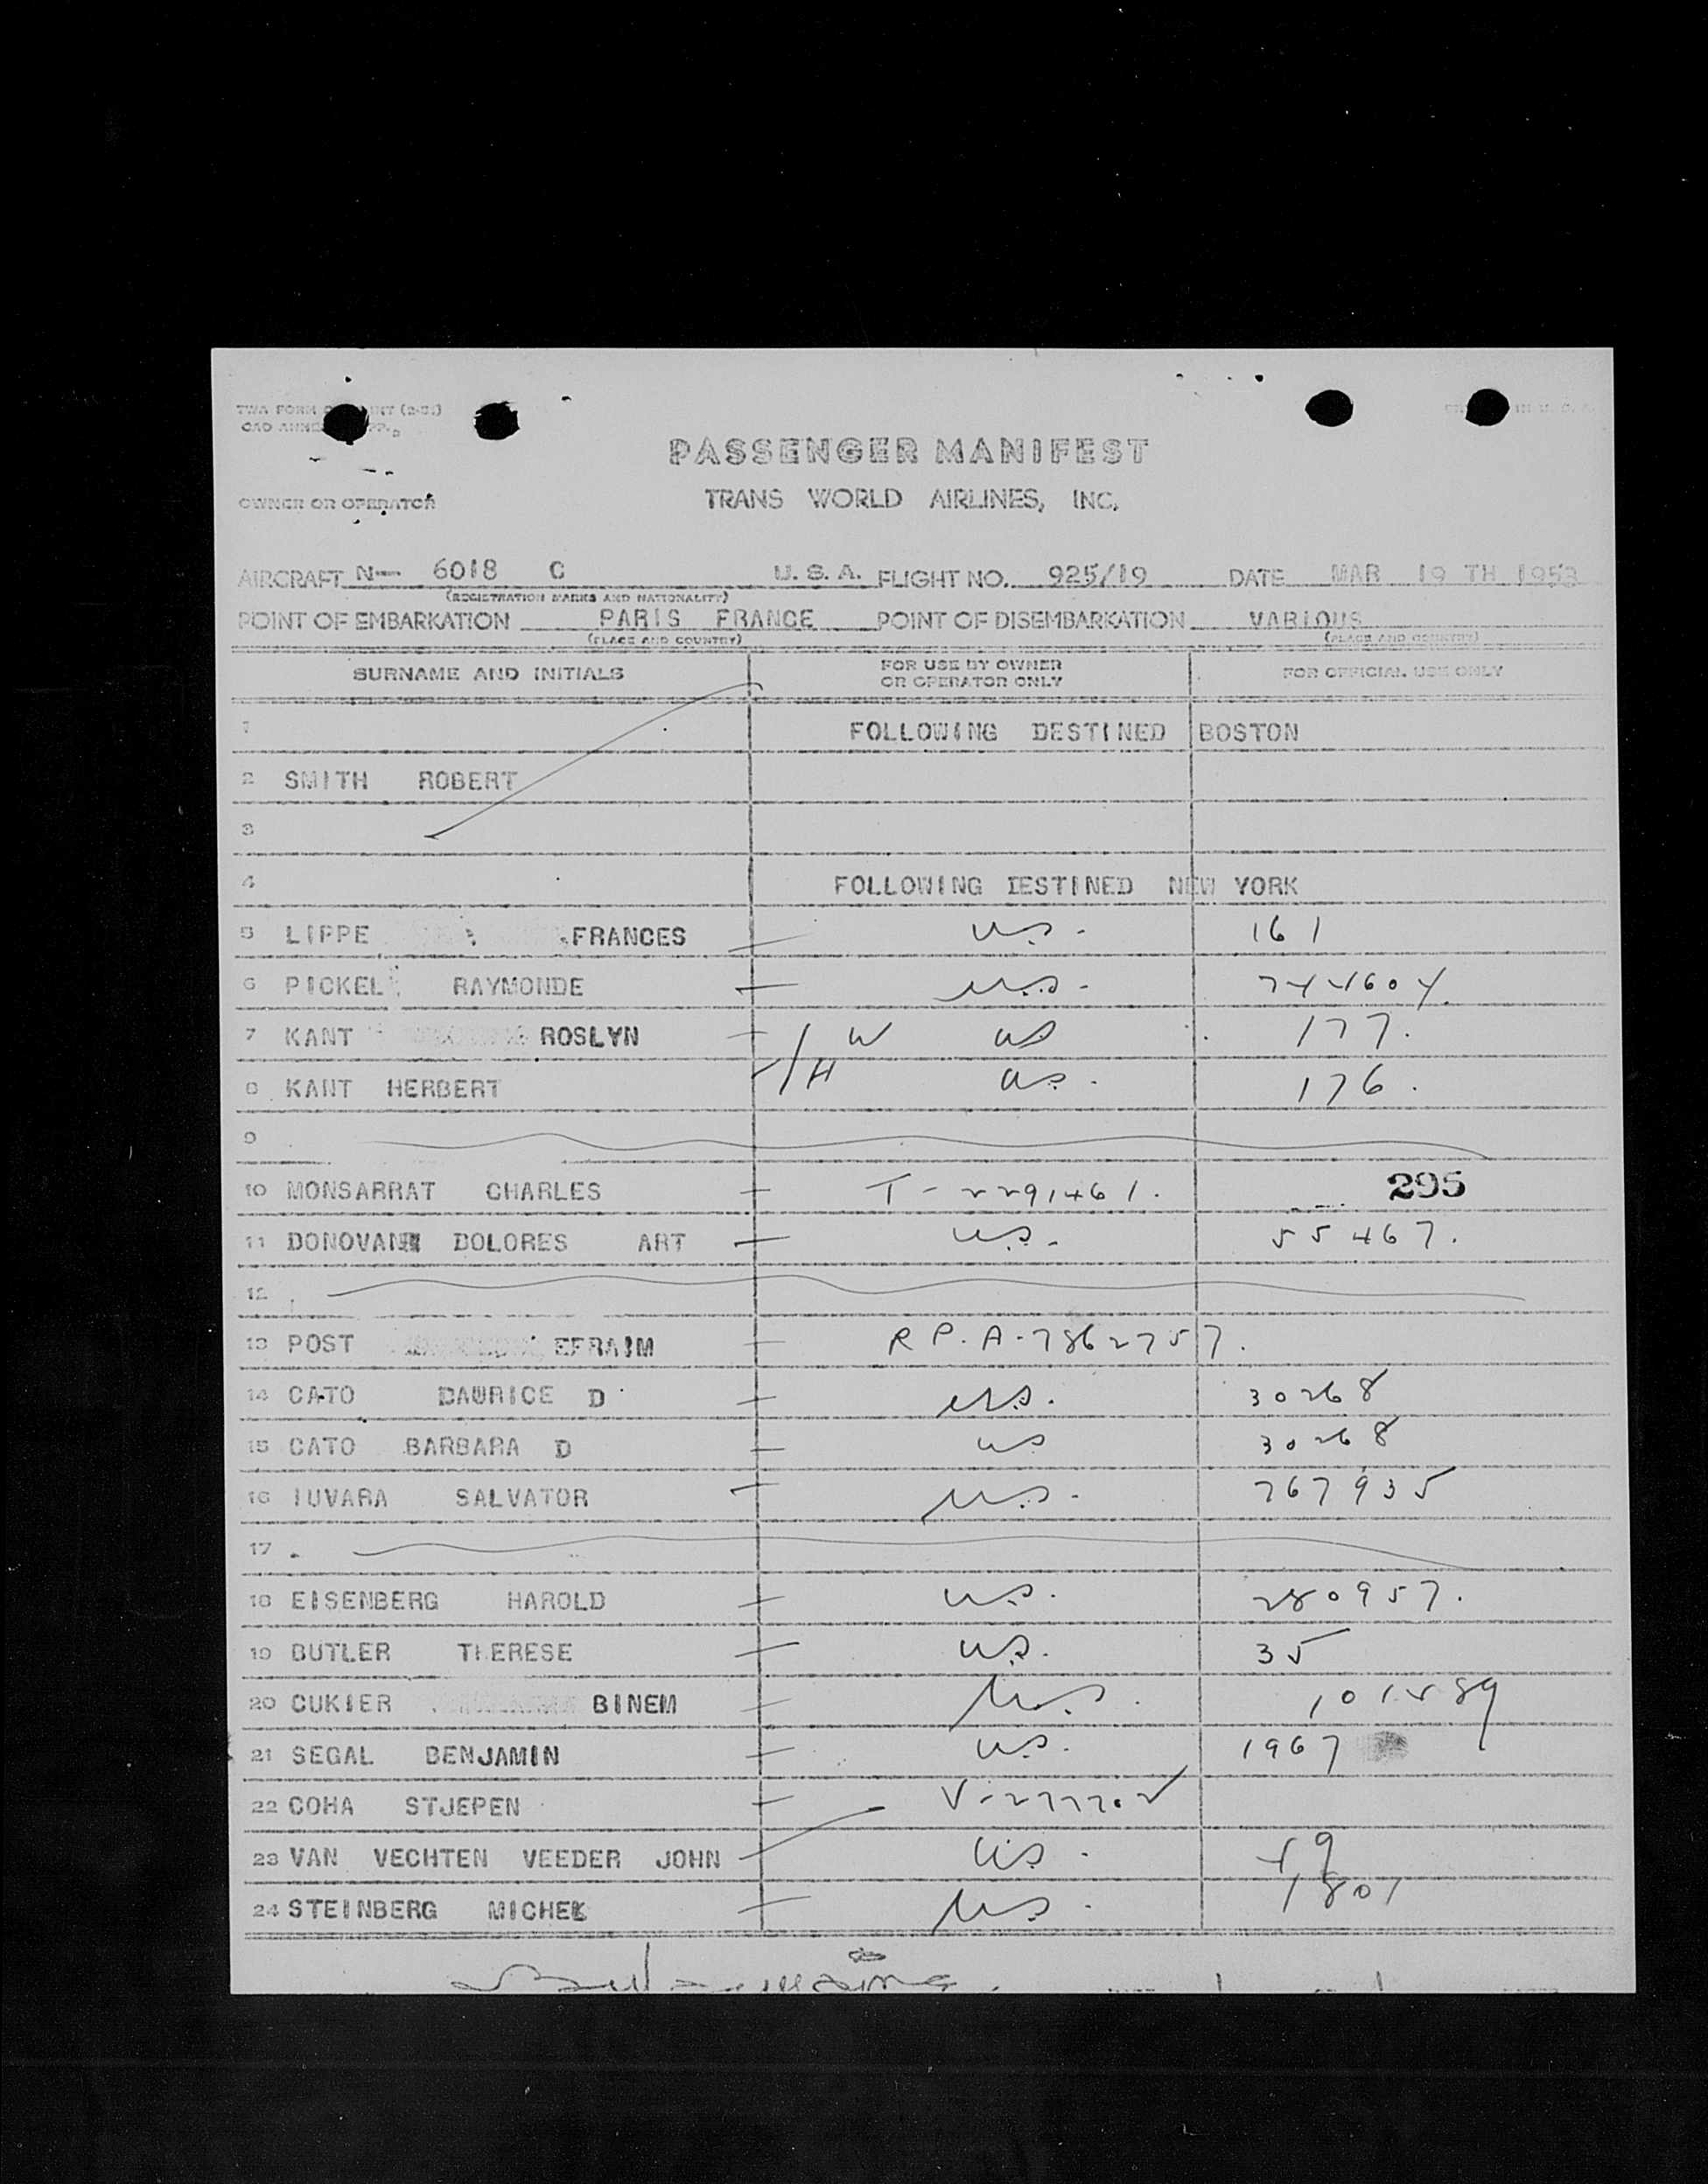 TWA FORM
PASSENGER MANIFEST
OWNER OR OPERATOR TRANS WORLD AIRLINES, INC.
AIRCRAFT N— 6018 C U.S.A. FLIGHT NO. 925/19 DATE MAR 19 TH 1953
(REGISTRATION MARKS AND NATIONALITY)
POINT OF EMBARKATION PARIS FRANCE POINT OF DISEMBARKATION VARIOUS
(PLACE AND COUNTRY) (PLACE AND COUNTRY)
SURNAME AND INITIALS FOR USE BY OWNER OR OPERATOR ONLY FOR OFFICIAL USE ONLY
1 FOLLOWING DESTINED BOSTON
2 SMITH ROBERT
3
4 FOLLOWING DESTINED NEW YORK
5 LIPPE FRANCES U.S. 161
6 PICKEL RAYMONDE U.S. 744604
7 KANT ROSLYN W US 177.
8 KANT HERBERT H U.S. 176.
9
10 MONSARRAT CHARLES T-2291461. 295
11 DONOVAN DOLORES ART U.S. 55467.
12
13 POST EFRAIM R P. A-7862757.
14 CATO DAURICE D U.S. 30268
15 CATO BARBARA D US 30268
16 IUVARA SALVATOR U.S. 767935
17
18 EISENBERG HAROLD U.S. 280957.
19 BUTLER THERESE U.S. 35
20 CUKIER BINEM U.S.
21 SEGAL BENJAMIN U.S. 1967
22 COHA STJEPEN
23 VAN VECHTEN VEEDER JOHN U.S. 49
24 STEINBERG MICHEL U.S. 1801